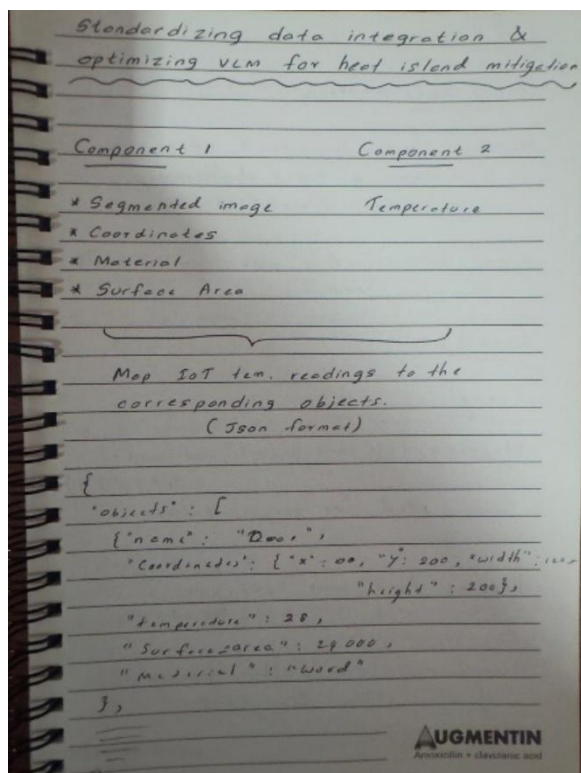 Standardizing data integration &
optimizing VLM for heat island mitigation
Component 1 Component 2
* Segmented image Temperature
* Coordinates
* Material
* Surface Area
Map IoT tem. readings to the
corresponding objects.
(Json format)
{
"objects" : [
{"name" : "Door",
"Coordinates" : { "x" : 00, "y" : 200, "width" :
"height" : 200},
"temperature" : 28,
"Surface_area" : 24000,
"material" : "Wood"
},
AUGMENTIN
Amoxicillin + clavulanic acid